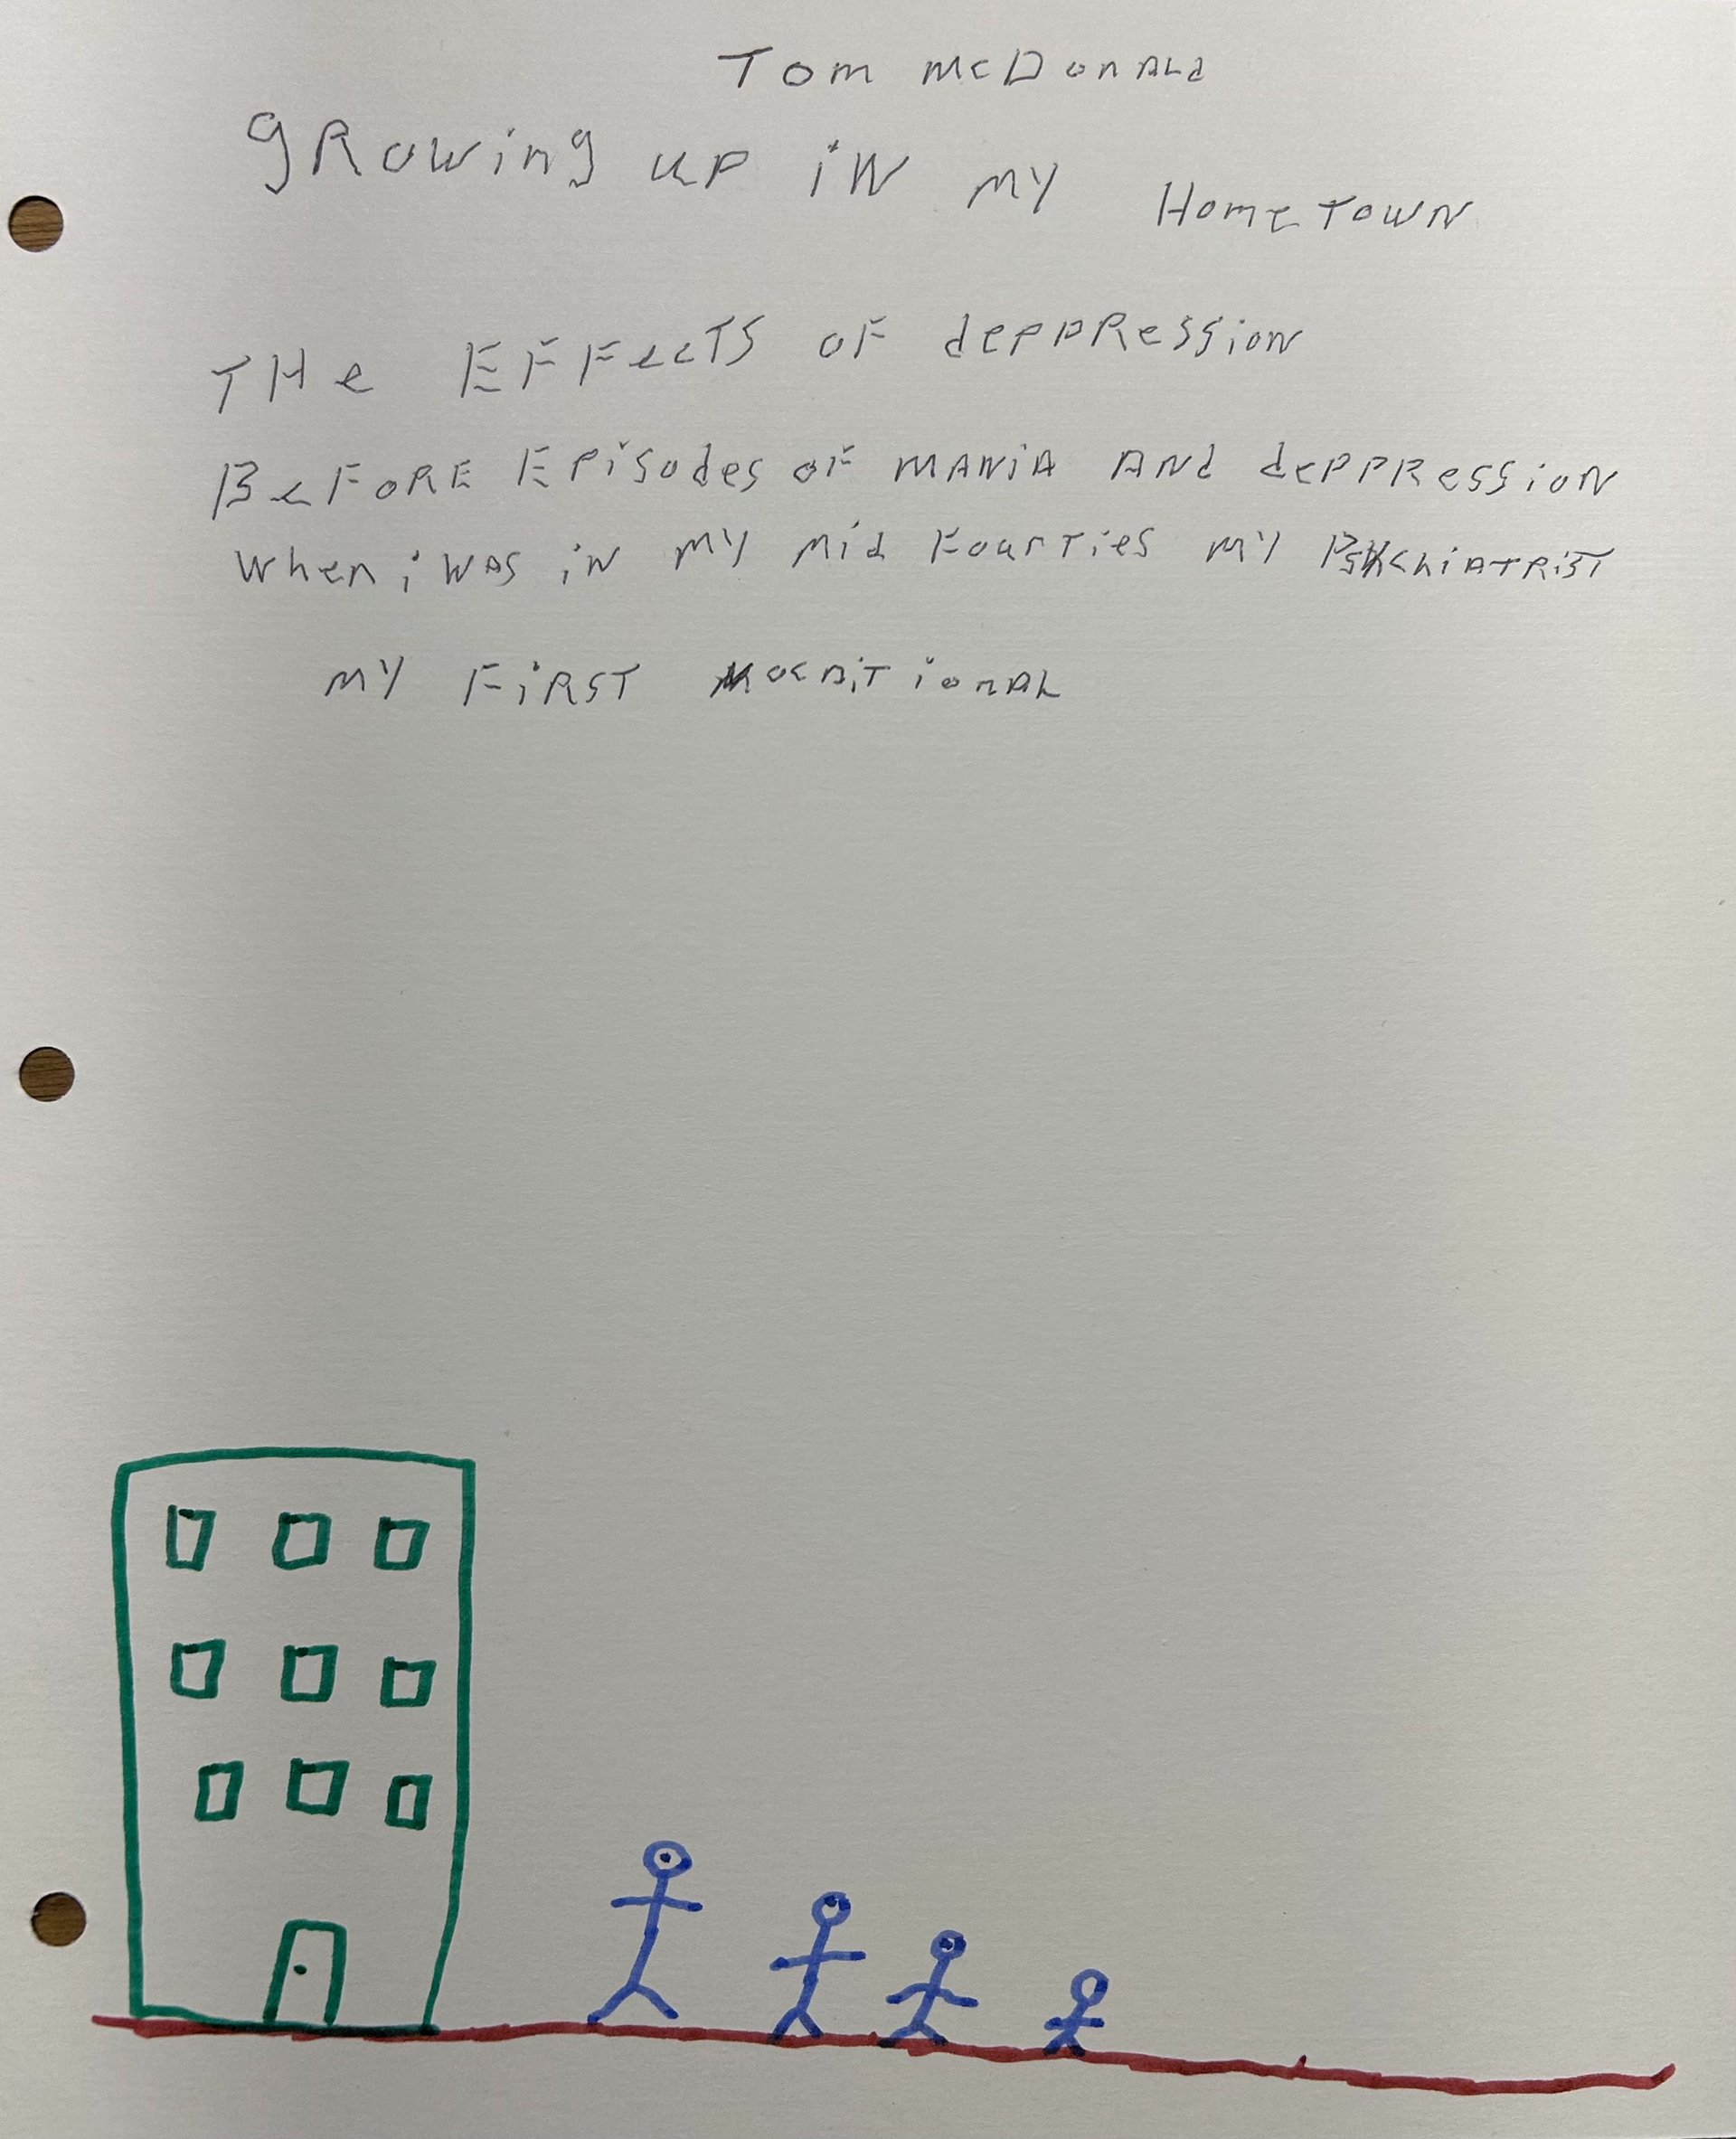 Tom McDonald
growing up in my Hometown
THe EFFects of deppression
BeFORE Episodes of mania and deppression
when i was in my mid Fourties my Pskchiatrist
my First